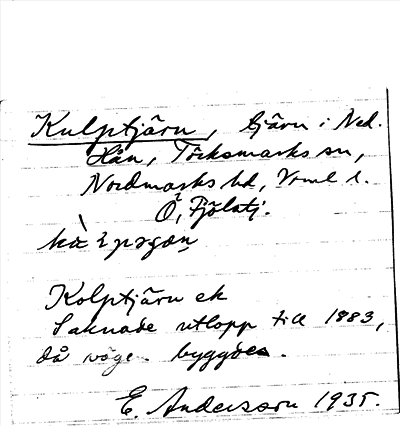 Kulptjärn, tjärn i Ned.
Hån, Töcksmarks sn,
Nordmarks hd, Vrml l.
Ö, Fjölatj.
Kolptjärn ek
Saknade utlopp till 1883,
då väge. byggdes.
E. Andersson 1935.